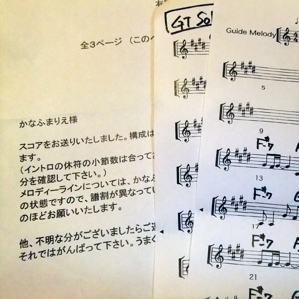 全3ページ (この
かなふまりえ様
スコアをお送りいたしました。構成は
ます。
(イントロの休符の小節数は合って
分を確認して下さい。)
メロディーラインについては、かなふ
の状態ですので、譜割が異なってい
のほどお願いいたします。
他、不明な分がございましたらご
それではがんばって下さい。うまく
GT So
Guide Melody
5
9
F#7
13
17
F#7
21